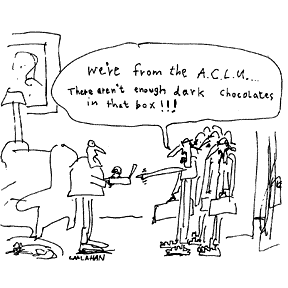 We're from the A.C.L.U....
There aren't enough dark chocolates
in that box!!!
CALLAHAN